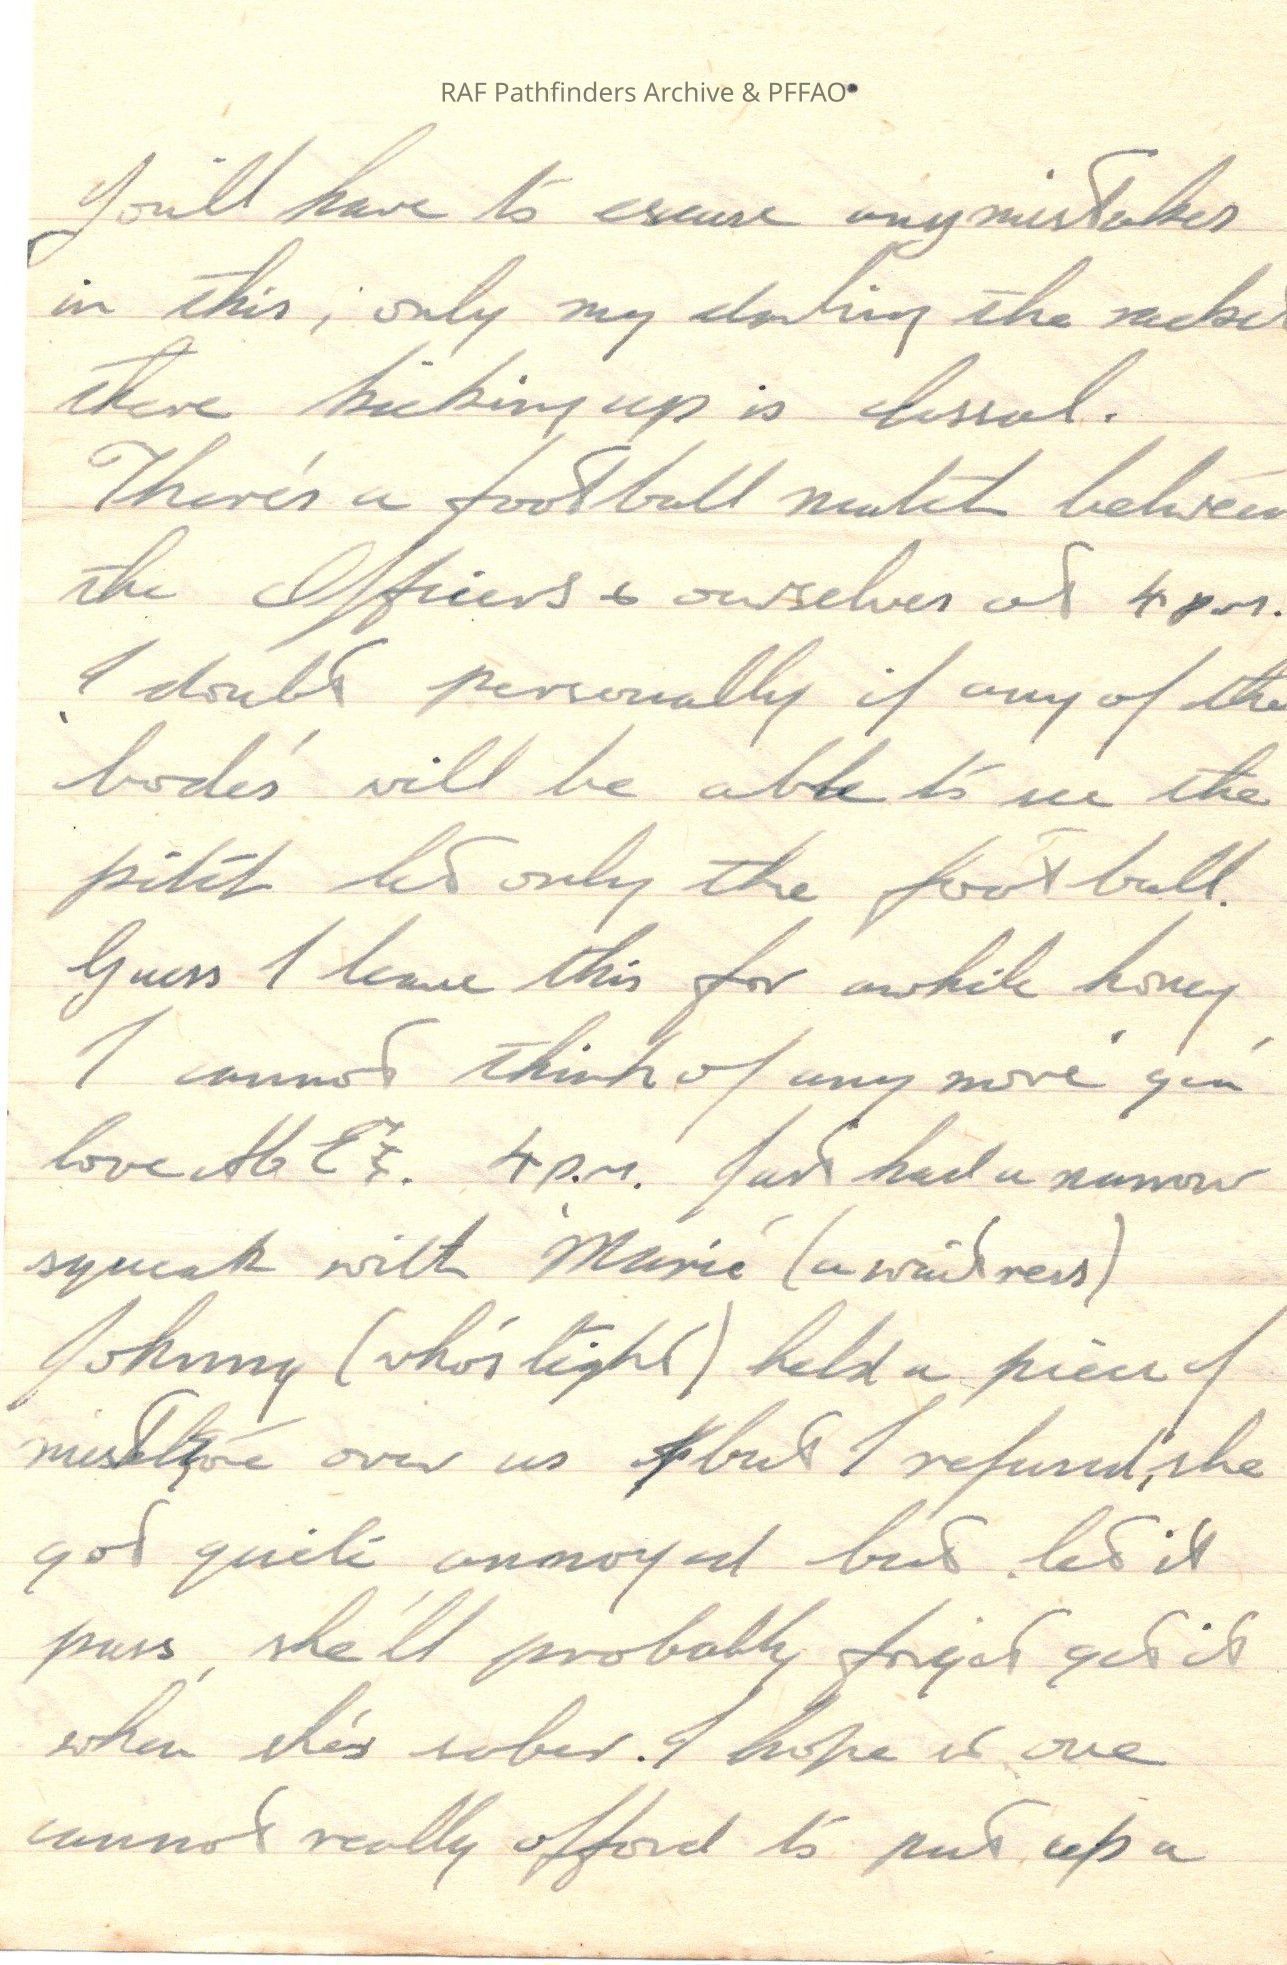 RAF Pathfinders Archive & PFFAO
You'll have to excuse any mistakes
in this, only my darling the racket
there kicking up is clossal.
There's a football match between
the Officers & ourselves at 4 p.m.
I doubt personally if any of the
'bodes' will be able to see the
pitch let only the football.
Guess I leave this for awhile honey
I cannot think of any more 'gen'
love 4 p.m. Just had a narrow
squeak with 'Marie' (a waitress)
Johnny (who's tight) held a piece of
mistletoe over us but I refused, she
got quite annoyed but let it
pass, she'll probably forget get it
when she's sober. I hope so one
cannot really afford to put up a